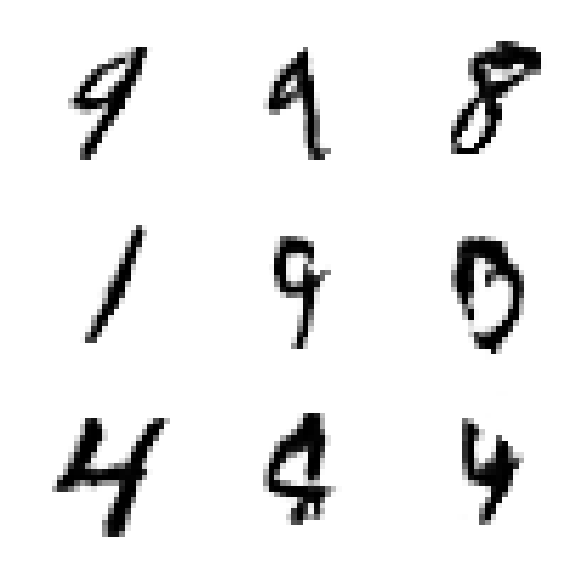 9 9 8
1 9 0
4 4